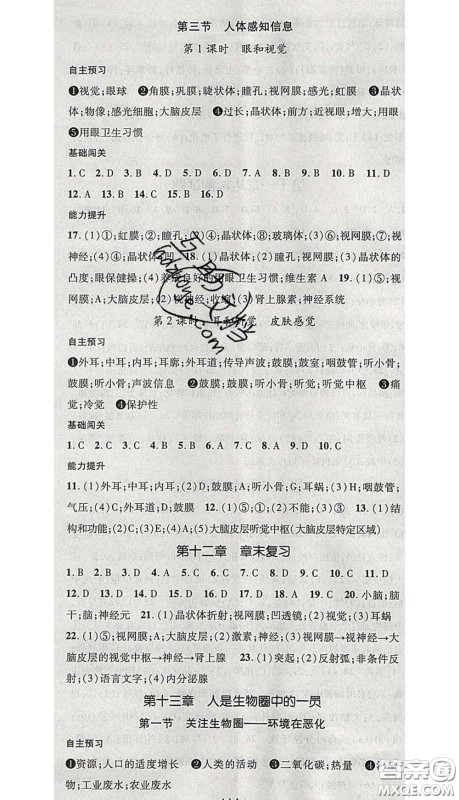 第三节　人体感知信息
第1课时　眼和视觉
自主预习
❶视觉;眼球　❷角膜;巩膜;睫状体;瞳孔;视网膜;感光;虹膜　❸晶状
体;物像;感光细胞;大脑皮层　❹过长;晶状体;前方;近视眼;增大;用眼
❺用眼卫生习惯
基础闯关
1. C　2. D　3. D　4. D　5. D　6. D　7. C　8. C　9. B　10. B　11. D
12. A　13. B　14. C　15. B　16. D
能力提升
17. (1)①;虹膜;②;瞳孔;④;晶状体;⑧;玻璃体;(3)⑥;视网膜;(7);视
神经;(4)④;晶状体;凹　18. (1)瞳孔;(2)晶状体;(3)视网膜;晶状体的
凸度;眼保健操;(4)养成良好的用眼卫生习惯;维生素A　19. (1)⑤;
视网膜;A;大脑皮层;(2)视神经;收缩;(3)肾上腺素;神经系统
第2课时　耳和听觉　皮肤感觉
自主预习
❶外耳;中耳;内耳;耳廓;外耳道;传导声波;鼓膜;鼓室;咽鼓管;听小骨;
鼓膜;听小骨;声波信息　❷鼓膜;鼓膜;听小骨;听觉;听觉中枢　❸痛
觉;冷觉　❹保护性
基础闯关
1. C　2. C　3. D　4. B　5. A　6. A　7. B　8. D　9. D　10. C
能力提升
11. (1)外耳;中耳;内耳;(2)C;鼓膜;(3)G;耳蜗;(4)H;咽鼓管;
气压;(4)C;外耳道;D;鼓膜　12. (1)⑤;①;(2)不能;(3)③　13. (1)
结构和功能;(2)C;(3)E;(4)A;(5)大脑皮层听觉中枢(大脑皮层特定区域)
第十二章　章末复习
1. B　2. B　3. D　4. B　5. A　6. D　7. C　8. D　9. C　10. C　11. D
12. D　13. D　14. D　15. D　16. A　17. D　18. A　19. C　20. 小脑;脑
干;脑;神经元　21. (1)晶状体折射;视网膜;凹透镜;(2)视觉;(3)耳蜗
22. (1)⑤;视网膜;A;大脑皮层;(2)激素;神经;(3)视网膜→视神经→大
脑皮层的视觉中枢→神经→肾上腺　23. (1)突起;(2)反射弧;非条件反
射;(3)语言文字;(4)内分泌腺
第十三章　人是生物圈中的一员
第一节　关注生物圈——环境在恶化
自主预习
❶资源;人口的适度增长　❷人类的活动　❸二氧化碳;热量　❹
物;工业废水;农业废水